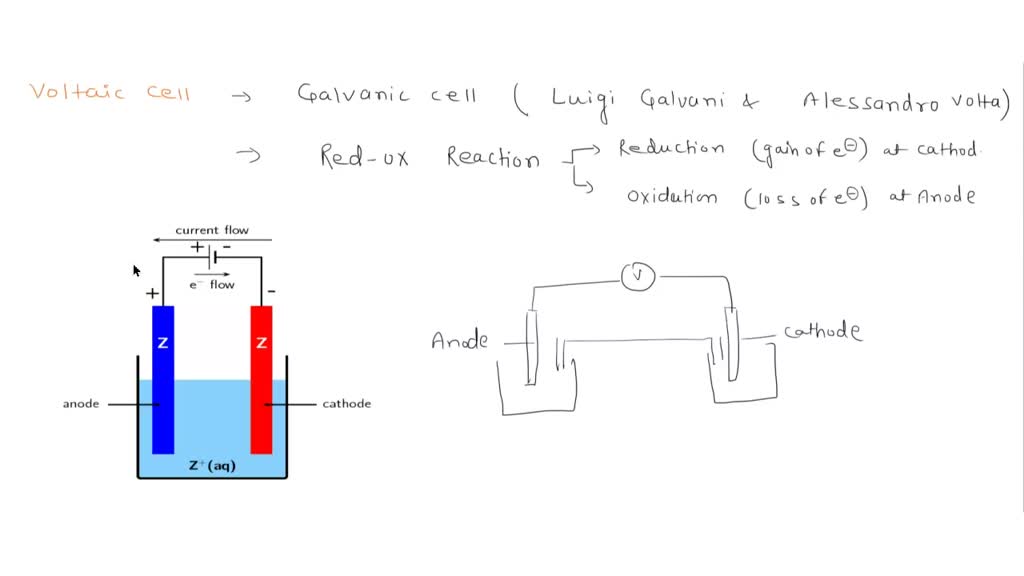 Voltaic cell → Galvanic cell ( Luigi Galvani & Alessandro Volta)
→ Red-ox Reaction → Reduction (gain of e⊖) at cathod.
→ oxidution (loss of e⊖) at Anode
current flow
+ -
e⁻ flow
+ -
V
Z Z
Anode
cathode
anode
cathode
Z⁺(aq)